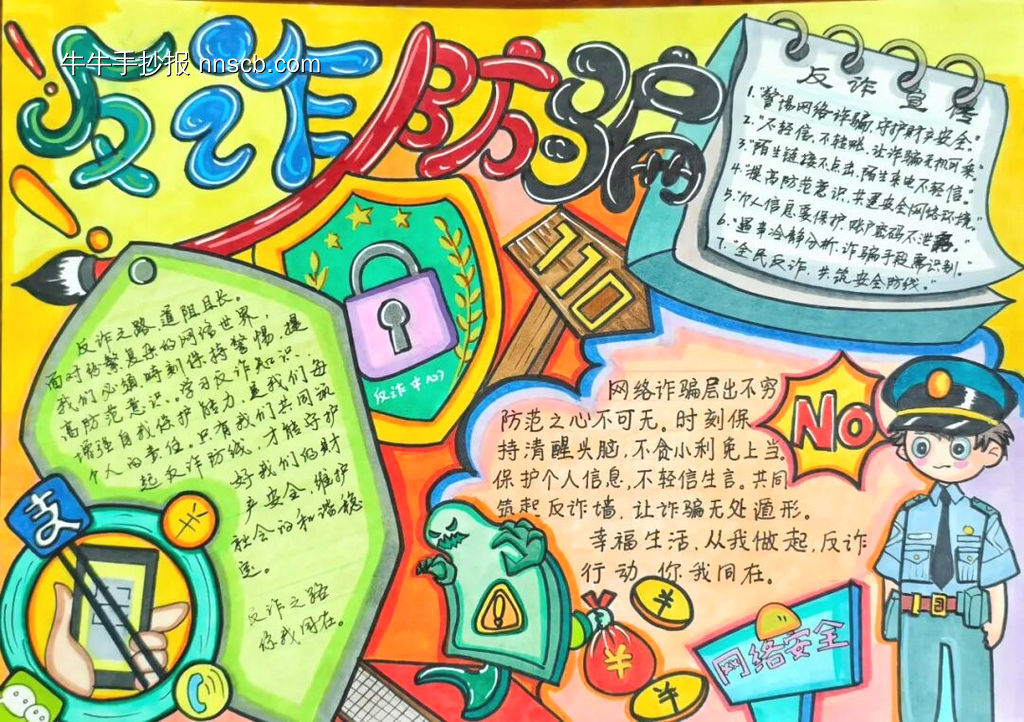 牛牛手抄报 nnscb.com
反诈防骗
反诈宣传
1."警惕网络诈骗,守护财产安全."
2."不轻信,不转账,让诈骗无机可乘."
3."陌生链接不点击,陌生来电不轻信."
4."提高防范意识,共建安全网络环境."
5."个人信息要保护,账户密码不泄露."
6."遇事冷静分析,诈骗手段需识别."
7."全民反诈,共筑安全防线."
110
反诈中心
反诈之路,道阻且长。
面对纷繁复杂的网络世界,
我们必须时刻保持警惕,提
高防范意识。学习反诈知识,
增强自我保护能力是我们每
个人的责任。只有我们共同筑
起反诈防线,才能守护
好我们的财
产安全,维护
社会的和谐稳
定。
反诈之路
你我同在。
支
¥
网络诈骗层出不穷
防范之心不可无。时刻保
持清醒头脑,不贪小利免上当,
保护个人信息,不轻信生言。共同
筑起反诈墙,让诈骗无处遁形。
幸福生活,从我做起,反诈
行动,你我同在。
NO
!
¥
¥
¥
网络安全